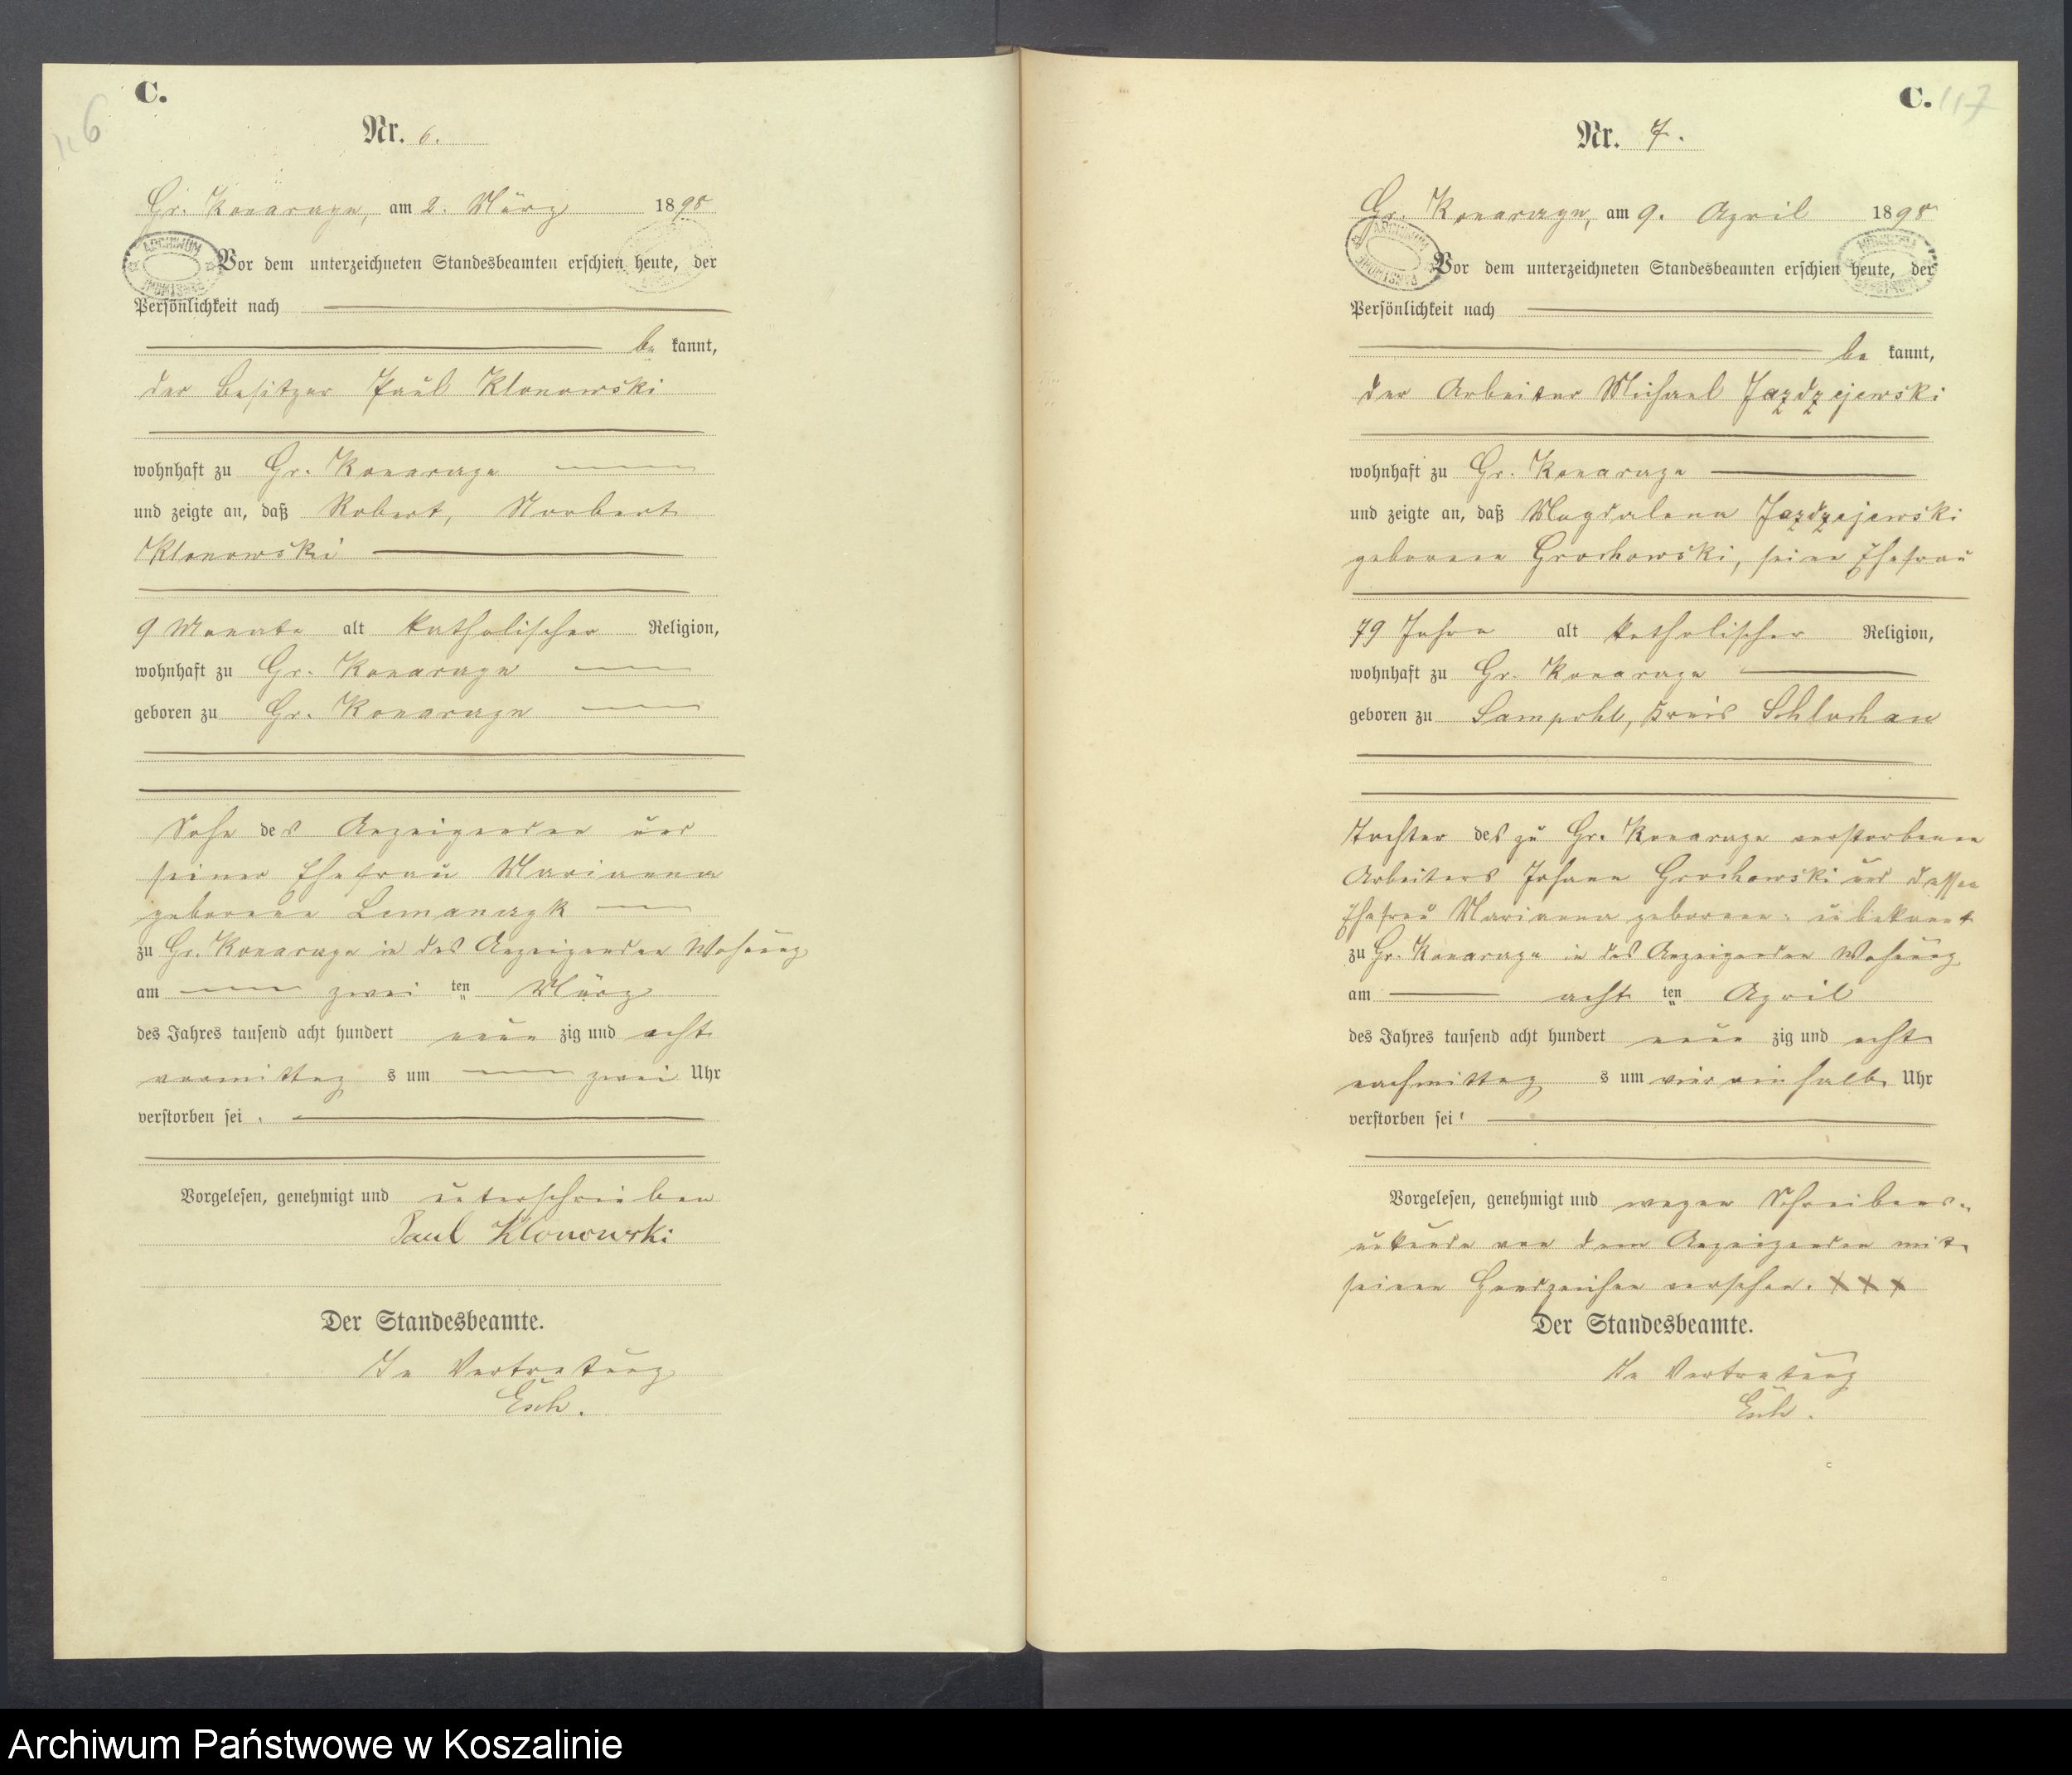 C.
116
Nr. 6.
Gr. Konarczyn, am 2. März 1898
Vor dem unterzeichneten Standesbeamten erschien heute, der
Persönlichkeit nach
be kannt,
der Besitzer Paul Klonowski
wohnhaft zu Gr. Konarczyn
und zeigte an, daß Robert, Norbert
Klonowski
9 Monate alt katholischer Religion,
wohnhaft zu Gr. Konarczyn
geboren zu Gr. Konarczyn
Sohn des Anzeigenden und
seiner Ehefrau Marianna
geborene Lemanczyk
zu Gr. Konarczyn in des Anzeigenden Wohnung
am zwei ten März
des Jahres tausend acht hundert neun zig und acht
vormittag s um zwei Uhr
verstorben sei.
Vorgelesen, genehmigt und unterschrieben
Paul Klonowski
Der Standesbeamte.
In Vertretung
C. 117
Nr. 7.
Gr. Konarczyn, am 9. April 1898
Vor dem unterzeichneten Standesbeamten erschien heute, der
Persönlichkeit nach
be kannt,
der Arbeiter Michael Jazdzejewski
wohnhaft zu Gr. Konarczyn
und zeigte an, daß Magdalena Jazdzejewski
geborene Grochowski, seine Ehefrau
79 Jahre alt katholischer Religion,
wohnhaft zu Gr. Konarczyn
geboren zu Sampohl, Kreis Schlochau
Tochter des zu Gr. Konarczyn verstorbenen
Arbeiters Johann Grochowski und dessen
Ehefrau Marianna geborene: unbekannt
zu Gr. Konarczyn in des Anzeigenden Wohnung
am acht ten April
des Jahres tausend acht hundert neun zig und acht
nachmittag s um vier ein halb Uhr
verstorben sei.
Vorgelesen, genehmigt und wegen Schreibens-
unkunde von dem Anzeigenden mit
seinen Handzeichen versehen. X X X
Der Standesbeamte.
In Vertretung
Archiwum Państwowe w Koszalinie